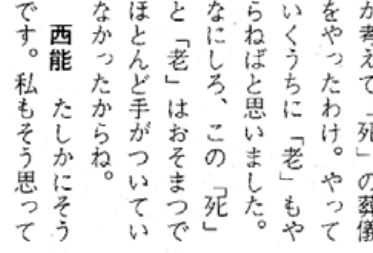 が考えて「死」の葬儀
をやったわけ。やって
いくうちに「老」もや
らねばと思いました。
なにしろ、この「死」
と「老」はおそまつで
ほとんど手がついてい
なかったからね。
西能　たしかにそう
です。私もそう思って